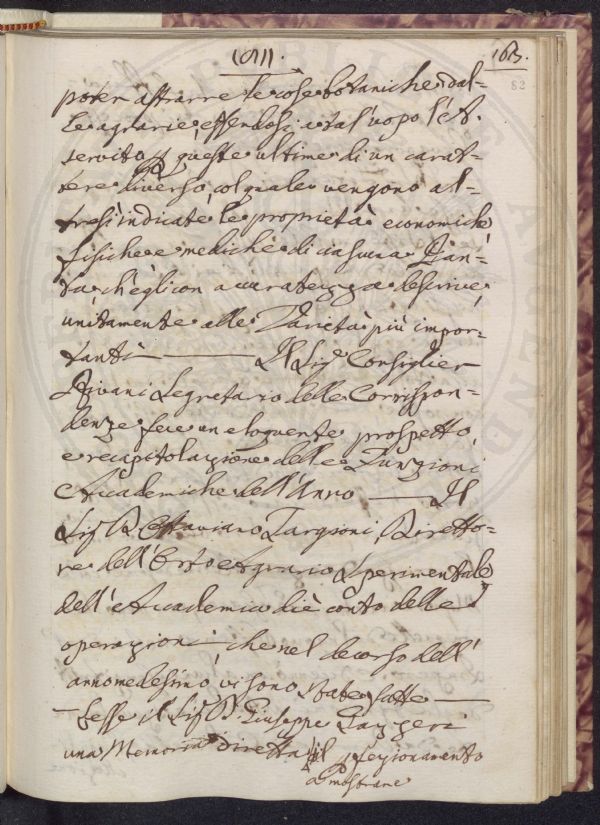 1811. 163.
82
poter astrarre le cose botaniche dal-
le agrarie essendosi a tal'uopo l'A.
servito queste ultime di un carat-
tere diverso, col quale vengono al-
tresì indicate le proprietà economiche
fisiche e mediche di ciascuna Pian-
ta ch'egli con accuratezza descrive
unitamente alle Varietà più impor-
tanti ——— Il Sig.r Consiglier
Rivani Segretario delle Corrispon-
denze fece un eloquente prospetto,
e recapitolazione delle Funzioni
Accademiche dell'Anno —— Il
Sig.r D. Ottaviano Targioni Diretto-
re dell'Orto Agrario Sperimentale
dell'Accademia diè conto delle
operazioni che nel decorso dell'
anno medesimo vi sono state fatte ——
— Lesse il Sig.r D. Giuseppe Gazzeri
una Memoria diretta
a mostrare